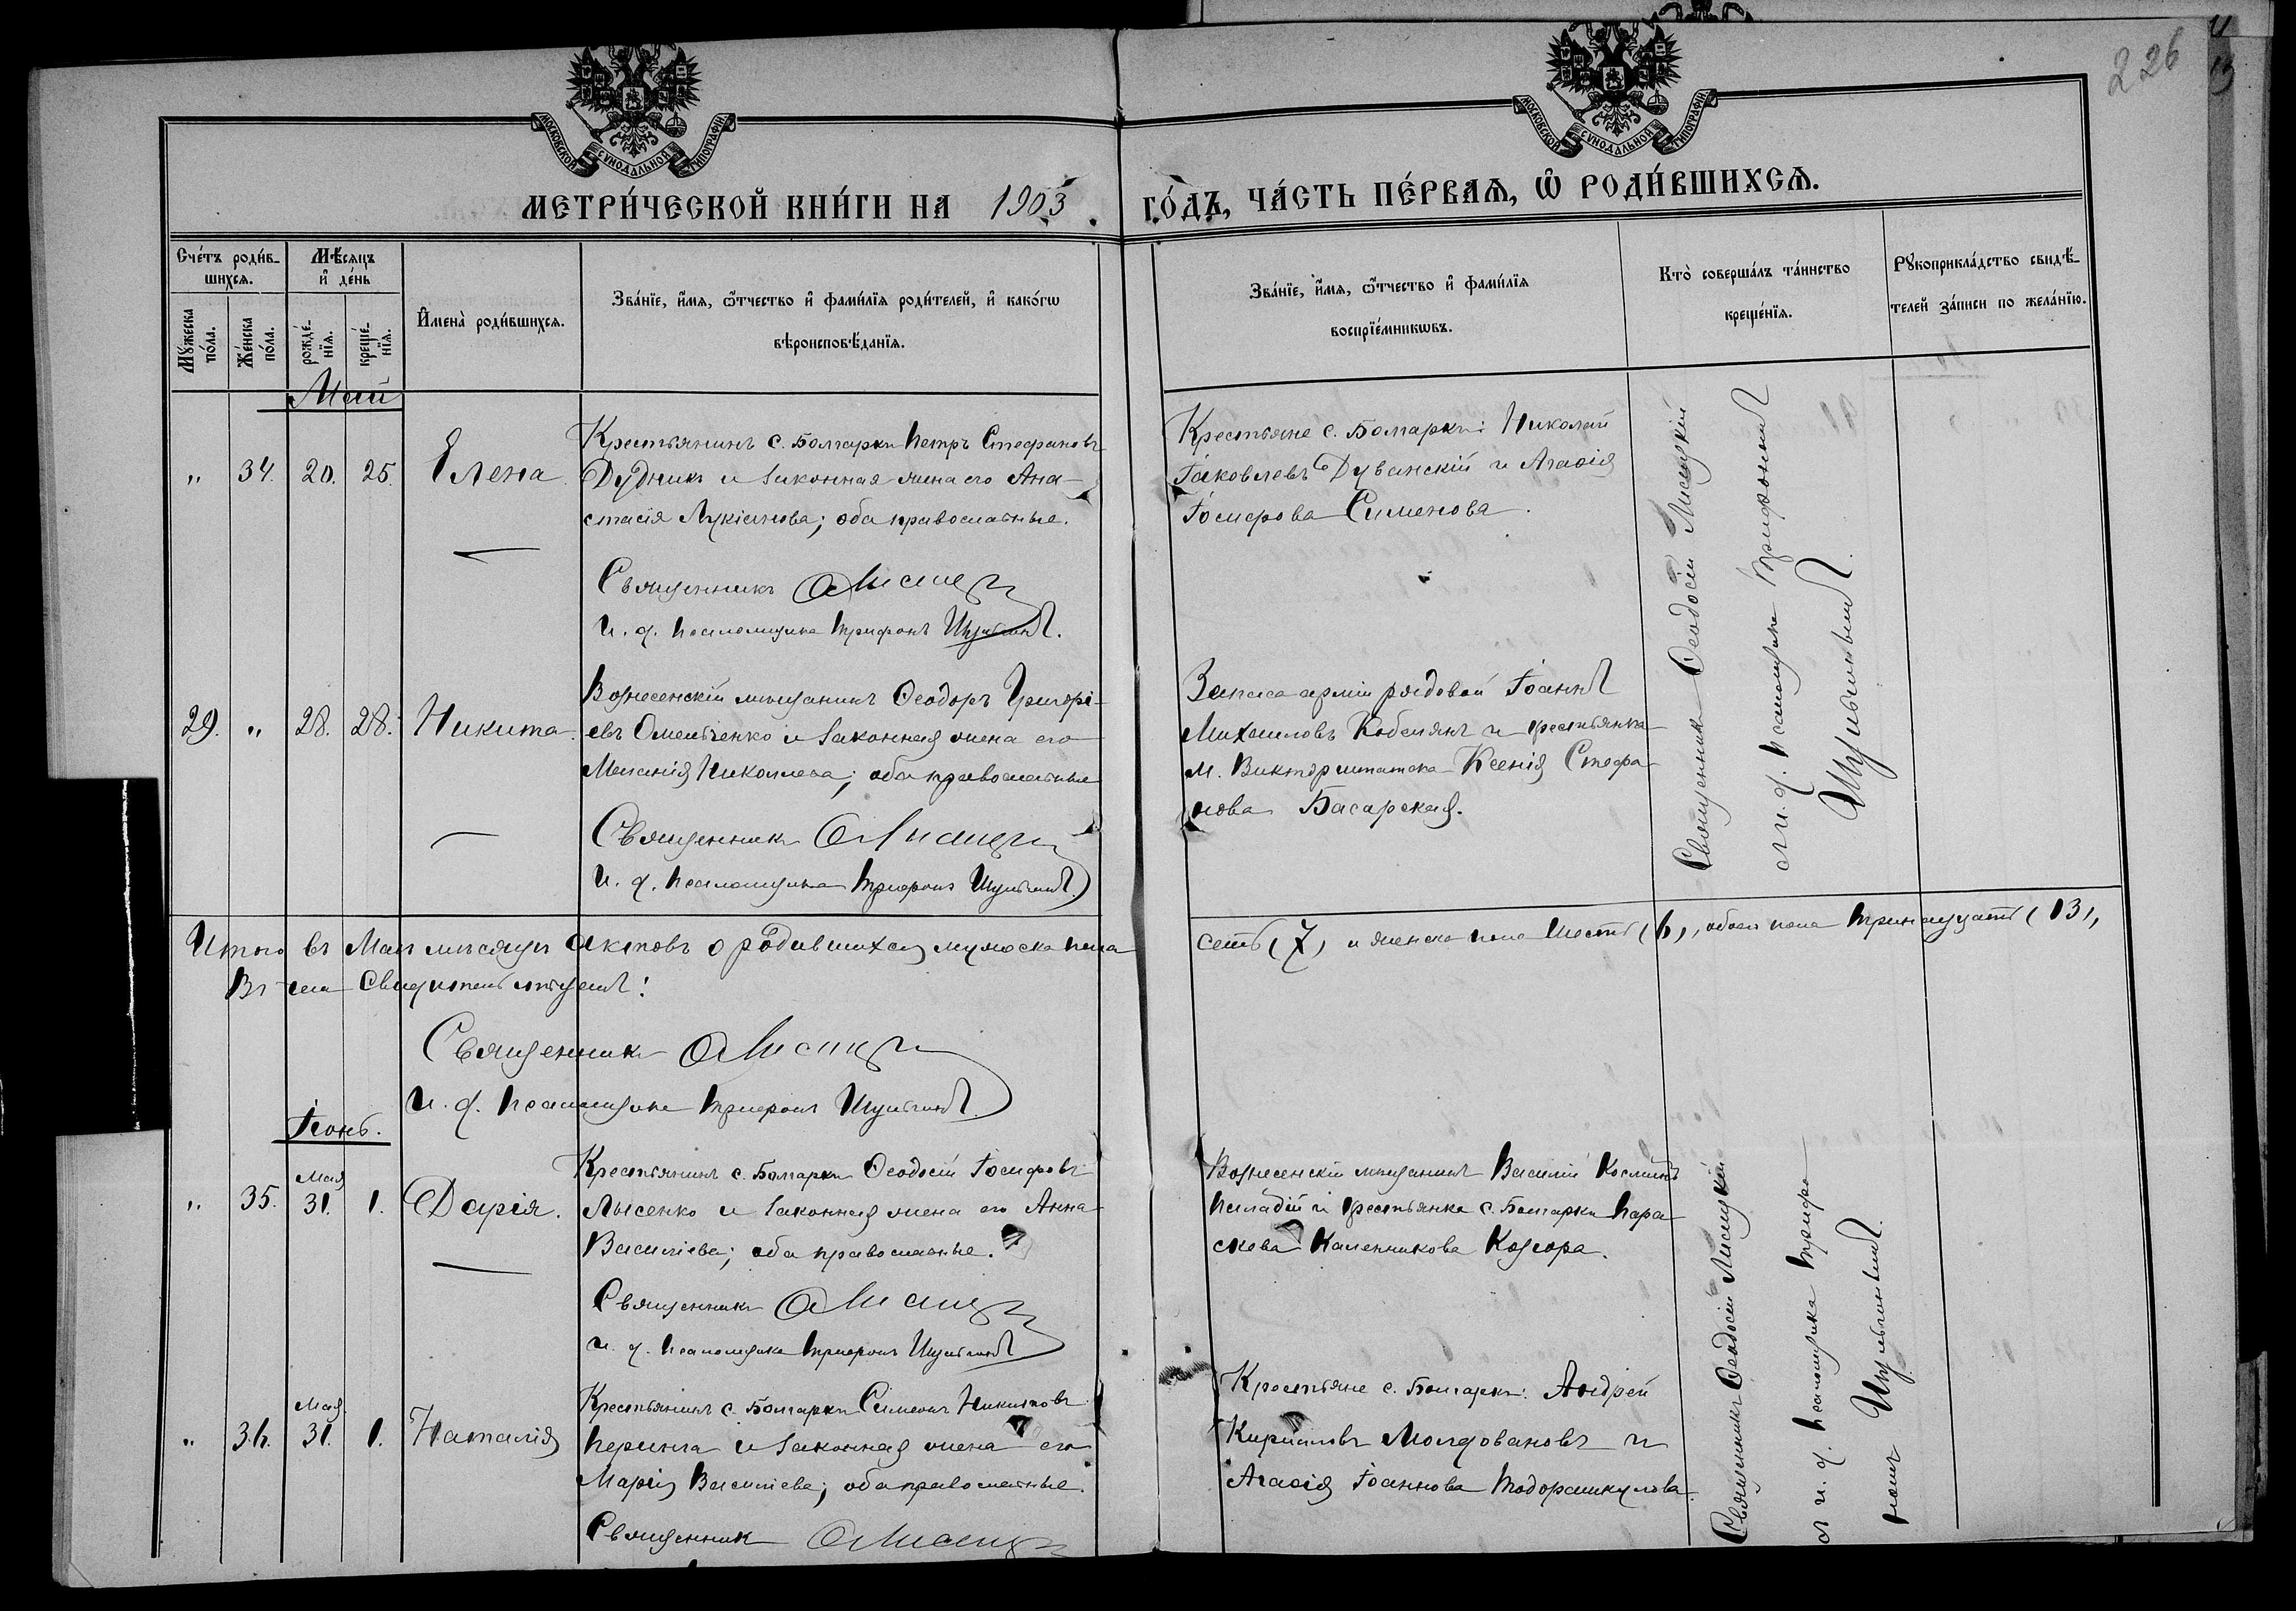 226
МОСКОВСКОЙ СѴНОДАЛЬНОЙ ТИПОГРАФІИ
МОСКОВСКОЙ СѴНОДАЛЬНОЙ ТИПОГРАФІИ
МЕТРИ́ЧЕСКОЙ КНИ́ГИ НА 1903 ГО́ДЪ, ЧА́СТЬ ПЕ́РВАЯ, Ѽ РОДИ́ВШИХСЯ.
Сче́тъ роди́в-
шихся.
Му́жеска по́ла.
Же́нска по́ла.
Мѣ́сяцъ
и҆ де́нь
рожде́-
нїя.
креще́-
нїя.
И҆мена̀ роди́вшихся.
Зва́нїе, и҆́мя, ѻ҆́тчество и҆ фами́лїя роди́телей, и҆ како́гѡ
вѣроисповѣ́данїя.
Зва́нїе, и҆́мя, ѻ҆́тчество и҆ фами́лїя
воспрїе́мникѡвъ.
Кто̀ соверша́лъ та́инство
креще́нїя.
Рꙋкоприкла́дство свидѣ́-
телей за́писи по жела́нїю.
Май
" 34. 20. 25. Елена.
Крестьянинъ с. Болгарки Петръ Стефановъ
Дудникъ и законная жена его Ана-
стасія Лукіанова; оба православные.
Священникъ Ѳ Лисицкій
И. д. псаломщика Трифонъ Шульгинъ.
Крестьяне с. Болгарки: Николай
Іаковлевъ Дуванскій и Агаѳія
Іосифова Сименова.
Священникъ Ѳеодосій Лисицкій
съ и. д. псаломщика Трифономъ
Шульгинымъ.
29. " 28. 28. Никита.
Вознесенскій мѣщанинъ Ѳеодоръ Григорі-
евъ Омельченко и законная жена его
Меланія Николаева; оба православные
Священникъ Ѳ Лисицкій
И. д. псаломщика Трифонъ Шульгинъ.
Запаса арміи рядовой Іоаннъ
Михаиловъ Кобелянъ и крестьянка
м. Викторштатска Ксенія Стефа-
нова Басарская.
Итого въ Маѣ мѣсяцѣ актовъ о родившихся мужеска пола семь (7) и женска пола шесть (6), обоего пола тринадцать (13),
Въ чемъ свидѣтельствуемъ:
Священникъ Ѳ Лисицкій
И. д. псаломщика Трифонъ Шульгинъ.
Іюнь.
" 35. Мая 31. 1. Дарія.
Крестьянинъ с. Болгарки Ѳеодосій Іосифовъ
Лысенко и законная жена его Анна
Василіева; оба православные.
Священникъ Ѳ Лисицкій
и. д. псаломщика Трифонъ Шульгинъ
Вознесенскій мѣщанинъ Василій Косминъ
и крестьянка с. Болгарки Пара-
скева Каленникова
Священникъ Ѳеодосій Лисицкій
съ и. д. псаломщика Трифо-
номъ Шульгинымъ.
" 36. Мая 31. 1. Наталія
Крестьянинъ с. Болгарки Симеонъ Никитовъ
и законная жена его
Марія Василіева; оба православные.
Священникъ Ѳ Лисицкій
Крестьяне с. Болгарки: Андрей
Кирилловъ Молдовановъ и
Агаѳія Іоаннова